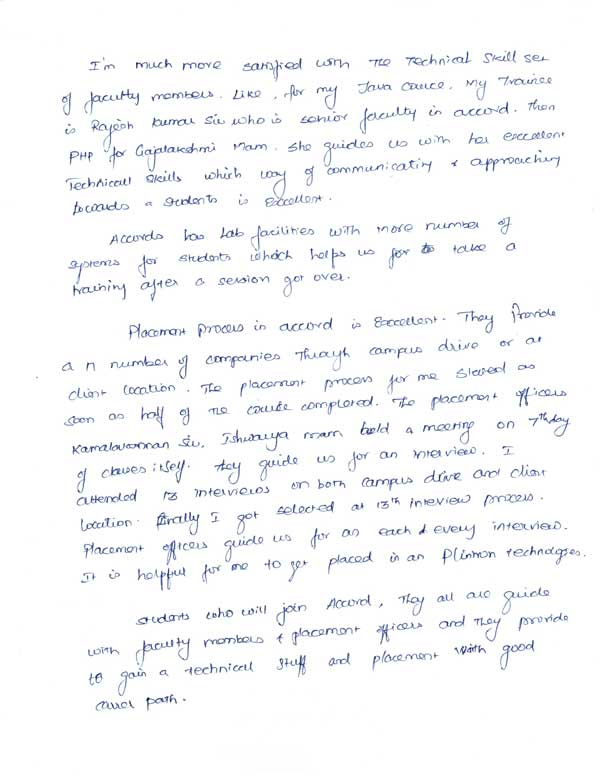 I'm much more satisfied with the Technical Skill set
of faculty members. Like, for my Java cource, My Trainee
is Rajesh kumar Sir who is senior faculty in accord. Then
PHP for Gajalakshmi Mam. She guides us with her exccellent
Technicall Skills which way of communicating & approaching
towards a students is Excellent.
Accords has Lab facilities with more number of
systems for students which helps us for to take a
training after a session got over.
Placement process in accord is Exccellent. They Provide
a n number of companies through campus drive or at
client location. The placement process for me started as
soon as half of the course completed. The placement officers
Kamalavannan Sir, Ishwarya mam held a meeting on 7th day
of classes itself. they guide us for an interview. I
attended 13 interviews on both campus drive and client
location. finally I got selected at 13th inteview process.
Placement officers guide us for an each & every interview.
It is helpful for me to get placed in an technologies.
Students who will join Accord, They all are guide
with faculty members & placement officers and they provide
to gain a technical stuff and placement with good
path.